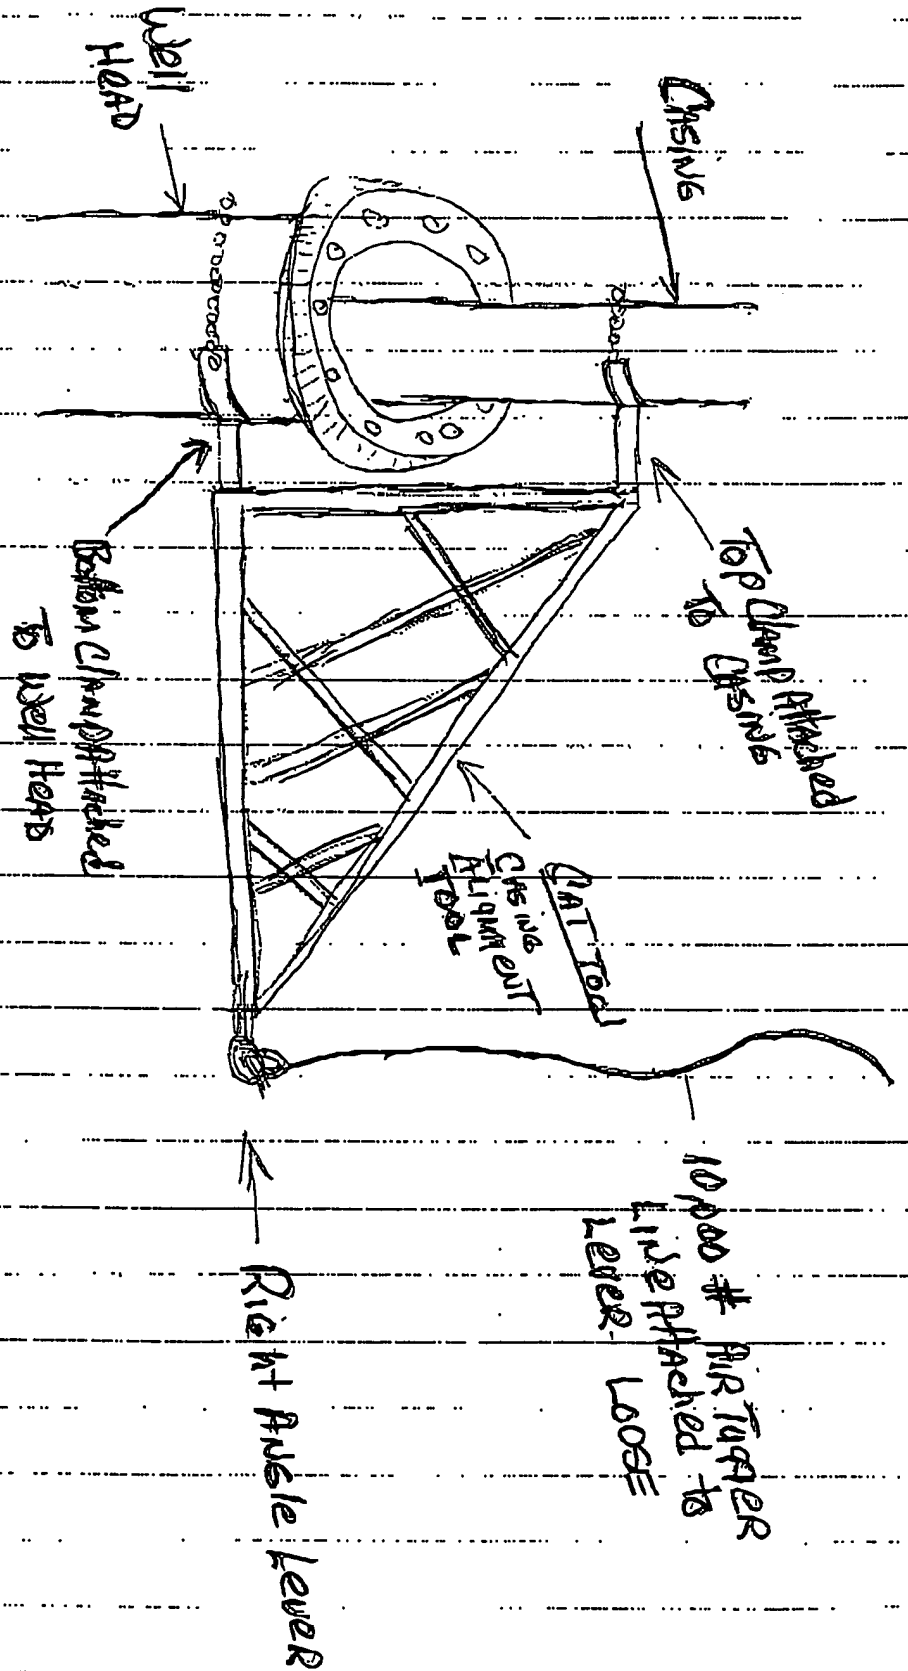 Well
HEAD
CASING
Top Clamp Attached
To CASING
Bottom Clamp Attached
To Well HEAD
CAT Tool
CASING
ALIGNMENT
TOOL
10,000 # AIR TUGGER
LINE Attached to
LEVER- LOOSE
RIGHT ANGLE LEVER